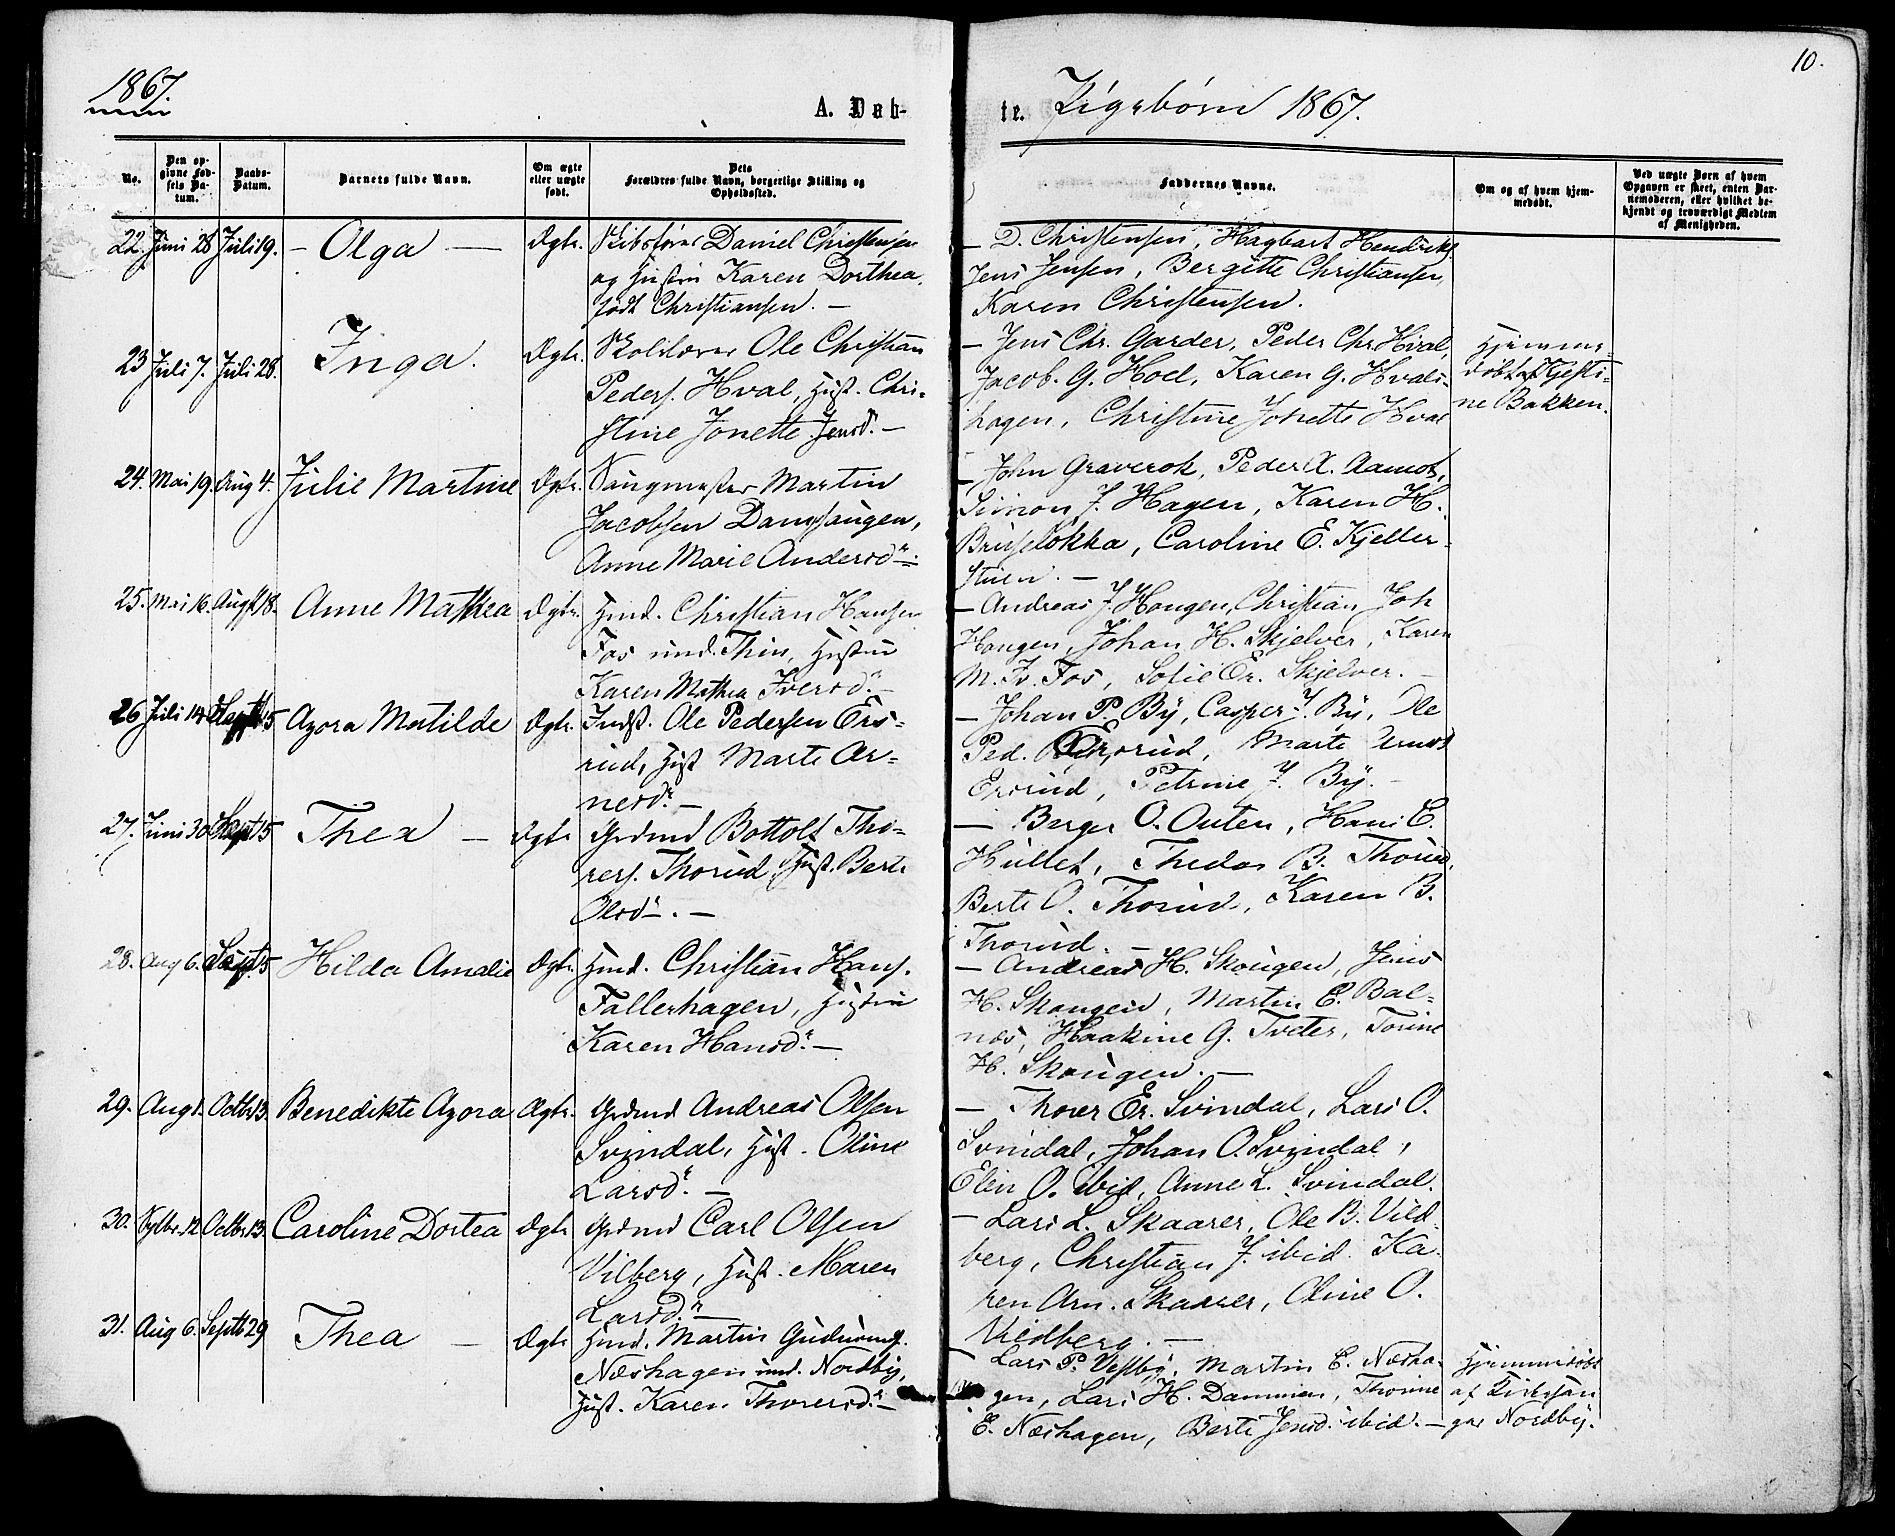 1867.
A. Døb-
te. Pigebørn 1867.
10.
No.
Den op-
givne Fød-
sels Da-
tum.
Daabs-
Datum.
Barnets fulde Navn.
Om ægte
eller uægte
født.
Dets
Forældres fulde Navn, borgerlige Stilling og
Opholdssted.
Faddernes Navne.
Om og af hvem hjem-
medøbt.
Ved uægte Børn af hvem
Opgaven er skeet, enten Bar-
nemoderen, eller hvilket be-
kjendt og troværdigt Medlem
af Menigheden.
22. Juni 28 Juli 19. – Olga – Ægte. Skibsfører Daniel Christensen
og Hustru Karen Dorthea,
født Christiansen. –
– D. Christensen, Hagbart Hendriks.
Jens Jensen, Bergitte Christiansen,
Karen Christensen.
23 Juli 7. Juli 28. Inga. Ægte. Skolelærer Ole Christian
Peders. Hval, Hust. Chri-
stine Jonette Jensd. –
– Jens Chr. Garder, Peder Chr. Hval,
Jacob. G. Hoel, Karen G. Hvals-
hagen, Christine Jonette Hval
Hjemme-
døbt af Kjesti-
ne Bakken.
24. Mai 19. Aug 4. Julie Martine Ægte. Saugmester Martin
Jacobsen Damsaugen,
Anne Marie Andersd. –
– John Graverok, Peder A. Aamot,
Simon J. Hagen, Karen H.
Bruseløkka, Caroline E. Kjeller-
stuen. –
25. Mai 16. Augst 18. Anne Mathea Ægte. Hmd. Christian Hansen
Fos und. Thin, Hustru
Karen Mathea Iversd. –
– Andreas J. Haugen, Christian Joh
Haugen, Johan H. Skjelver, Karen
M. Iv. Fos, Sofie Er. Skjelver. –
26 Juli 14 Sept 15 Agora Matilde Ægte. Indst. Ole Pedersen Ers-
rud, Hust Marte Ar-
nesd. –
– Johan P. By, Casper J. By, Ole
Ped. Ersrud, Marte Arnsd
Ersrud, Petrine J. By. –
27. Juni 30 Sept 15 Thea – Ægte Grdmd Bottolf Tho-
rers. Thorud, Hust. Berte
Olsd. –
– Berger O. Outen, Hans E.
Hullet, Thedor B. Thorud,
Berte O. Thorud, Karen B.
Thorud. –
28. Aug 6. Sept 15 Hilda Amalie Ægte. Hmd. Christian Hans.
Fallerhagen, Hustru
Karen Hansd. –
– Andreas H. Skougen, Jens
H. Skougen, Martin E. Bal-
nes, Haakine G. Tveter, Torine
H. Skougen. –
29. Aug 1. Octbr 13. Benedikte Agora Ægte. Grdmd Andreas Olsen
Svindal, Hust. Oline
Larsd. –
– Thorer Er. Svindal, Lars O.
Svindal, Johan O. Svindal,
Elen O. ibid, Anne L. Svindal.
30. Sptbr. 12 Octbr 13. Caroline Dortea Ægte Grdmd Carl Olsen
Vilberg, Hust. Maren
Larsd. –
– Lars L. Skaarer, Ole B. Vild-
berg, Christian J. ibid. Ka-
ren Arn. Skaarer, Oline O.
Vildberg. –
31. Aug 6. Septb 29 Thea – Ægte Hmd. Martin Gudmunds.
Næshagen und. Nordby,
Hust. Karen Thorersd. –
– Lars P. Vestby, Martin E. Næsha-
gen, Lars H. Dammen, Thorine
E. Næshagen, Berte Jensd. ibid. –
Hjemmedøbt
af Kirkesan-
ger Nordby.